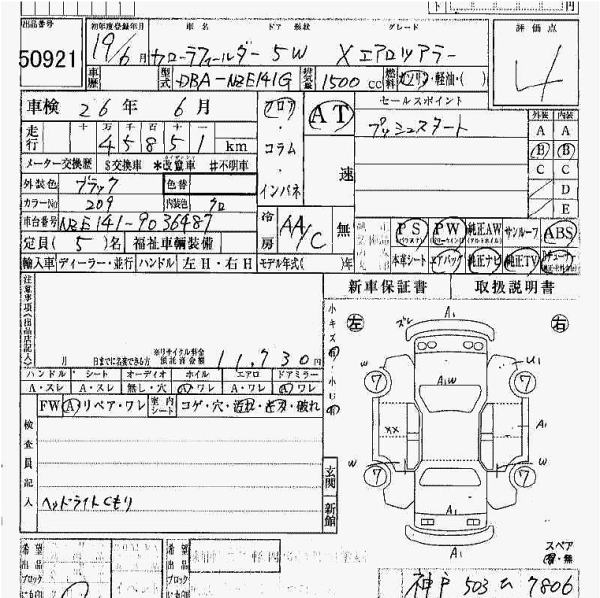 出品番号 初年度登録年月 車名 ドア 形状 グレード 評価点
50921 19/6月 カローラフィールダー 5W Xエアロツアラー 4
車歴 型式 DBA-NZE141G 排気量 1500cc 燃料 ガソリン・軽油・( )
車検 26年 6月 フロア・コラム・インパネ AT 速 セールスポイント 外装 内装
走行 十万千百十一
45851 km プッシュスタート A A
メーター交換歴 $交換車 *改ざん車 #不明車 B B
外装色 ブラック 色替 C C
カラーNo 209 内装色 クロ D
車台番号 NZE141-9036487 冷房 AA/C 無 E
定員(5)名 福祉車輌装備 PS PW 純正AW サンルーフ ABS
輸入車 ディーラー・並行 ハンドル 左H・右H モデル年式( )年 本革シート エアバッグ 純正ナビ 純正TV
新車保証書 取扱説明書
注意事項(出品店記入)
月 日までに名変できる方 ※リサイクル料金預託済合計 11,730円
ハンドル シート オーディオ ホイル エアロ ドアミラー
A・スレ A・スレ 無し・穴 A ワレ A・ワレ A ワレ
FW A・リペア・ワレ 室内シート コゲ・穴・汚れ・破れ
検査員記入
ヘッドライトくもり
玄関
新館
小キズ
左 右
ズレ A1
A1W U1
W 7 7 W
XX A1
W 7 7 W
A1
A1
スペア
有・無
希望出品ブロック 希望出品ブロック
神戸 503 ひ 7806